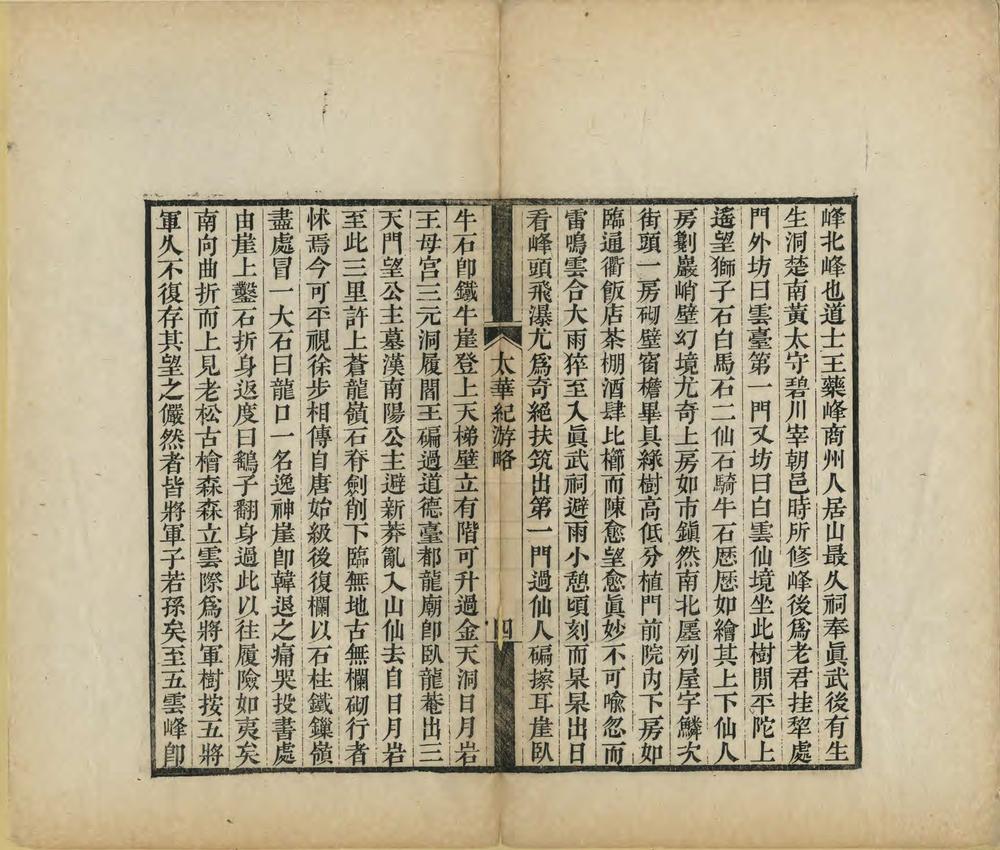 峰北峰也道士王藥峰商州人居山最久祠奉眞武後有生
生洞楚南黃太守碧川宰朝邑時所修峰後爲老君挂犂處
門外坊曰雲臺第一門又坊曰白雲仙境坐此樹閒平陀上
遙望獅子石白馬石二仙石騎牛石歷歷如繪其上下仙人
房劖巖峭壁幻境尤奇上房如市鎭然南北廛列屋宇鱗次
街頭一房砌壁窗檐畢具綠樹高低分植門前院內下房如
臨通衢飯店茶棚酒肆比櫛而陳愈望愈眞妙不可喩忽而
雷鳴雲合大雨猝至入眞武祠避雨小憩頃刻而杲杲出日
看峰頭飛瀑尤爲奇絕扶筇出第一門過仙人碥擦耳崖臥
太華紀游略
四
牛石卽鐵牛崖登上天梯壁立有階可升過金天洞日月岩
王母宮三元洞履閻王碥過道德臺都龍廟卽臥龍菴出三
天門望公主墓漢南陽公主避新莽亂入山仙去自日月岩
至此三里許上蒼龍嶺石脊劍削下臨無地古無欄砌行者
怵焉今可平視徐步相傳自唐始級後復欄以石柱鐵鏁嶺
盡處冒一大石曰龍口一名逸神崖卽韓退之痛哭投書處
由崖上鑿石折身返度曰鷂子翻身過此以往履險如夷矣
南向曲折而上見老松古檜森森立雲際爲將軍樹按五將
軍久不復存其望之儼然者皆將軍子若孫矣至五雲峰卽